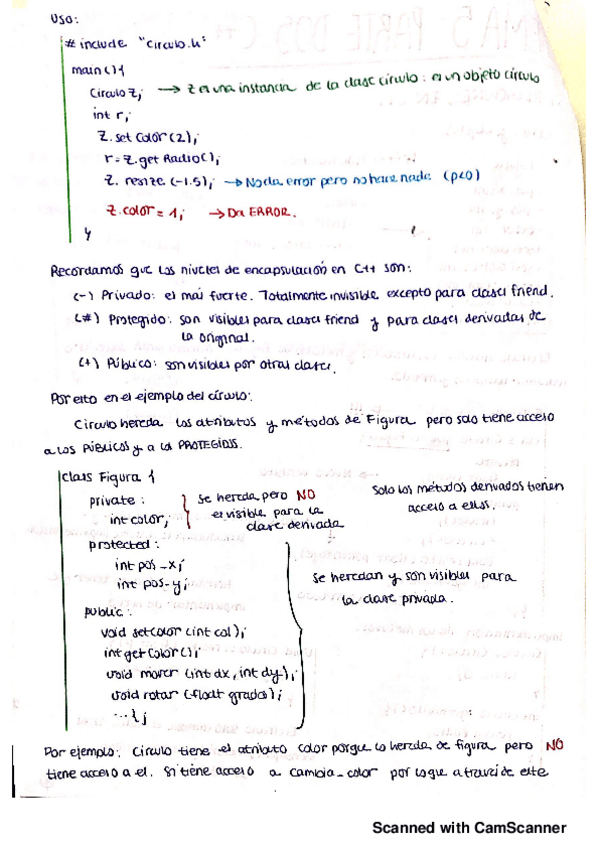 Uso:
# include "Circulo.h"
main(){
Circulo Z; → Z es una instancia de la clase círculo: es un objeto círculo
int r;
Z. set Color(2);
r = Z. get Radio();
Z. resize (-1.5); → No da error pero no hace nada (p<0)
Z. color = 1; → Da ERROR.
}
Recordamos que los niveles de encapsulación en C++ son:
(-) Privado: el más fuerte. Totalmente invisible excepto para clases friend.
(#) Protegido: son visibles para clases friend y para clases derivadas de
la original.
(+) Público: son visibles por otras clases.
Por esto en el ejemplo del círculo:
Circulo hereda los atributos y métodos de Figura pero solo tiene acceso
a los PÚBLICOS y a los PROTEGIDOS.
class Figura {
private:
int color;
se hereda pero NO
es visible para la
clase derivada
Solo los métodos derivados tienen
acceso a ellos.
protected:
int pos-x;
int pos-y;
public:
void setcolor (int col);
int getColor();
void mover (int dx, int dy);
void rotar (float grados);
...};
Se heredan y son visibles para
la clase privada.
Por ejemplo: Circulo tiene el atributo color porque lo hereda de figura pero NO
tiene acceso a el. Si tiene acceso a cambia_color por lo que a través de este
Scanned with CamScanner